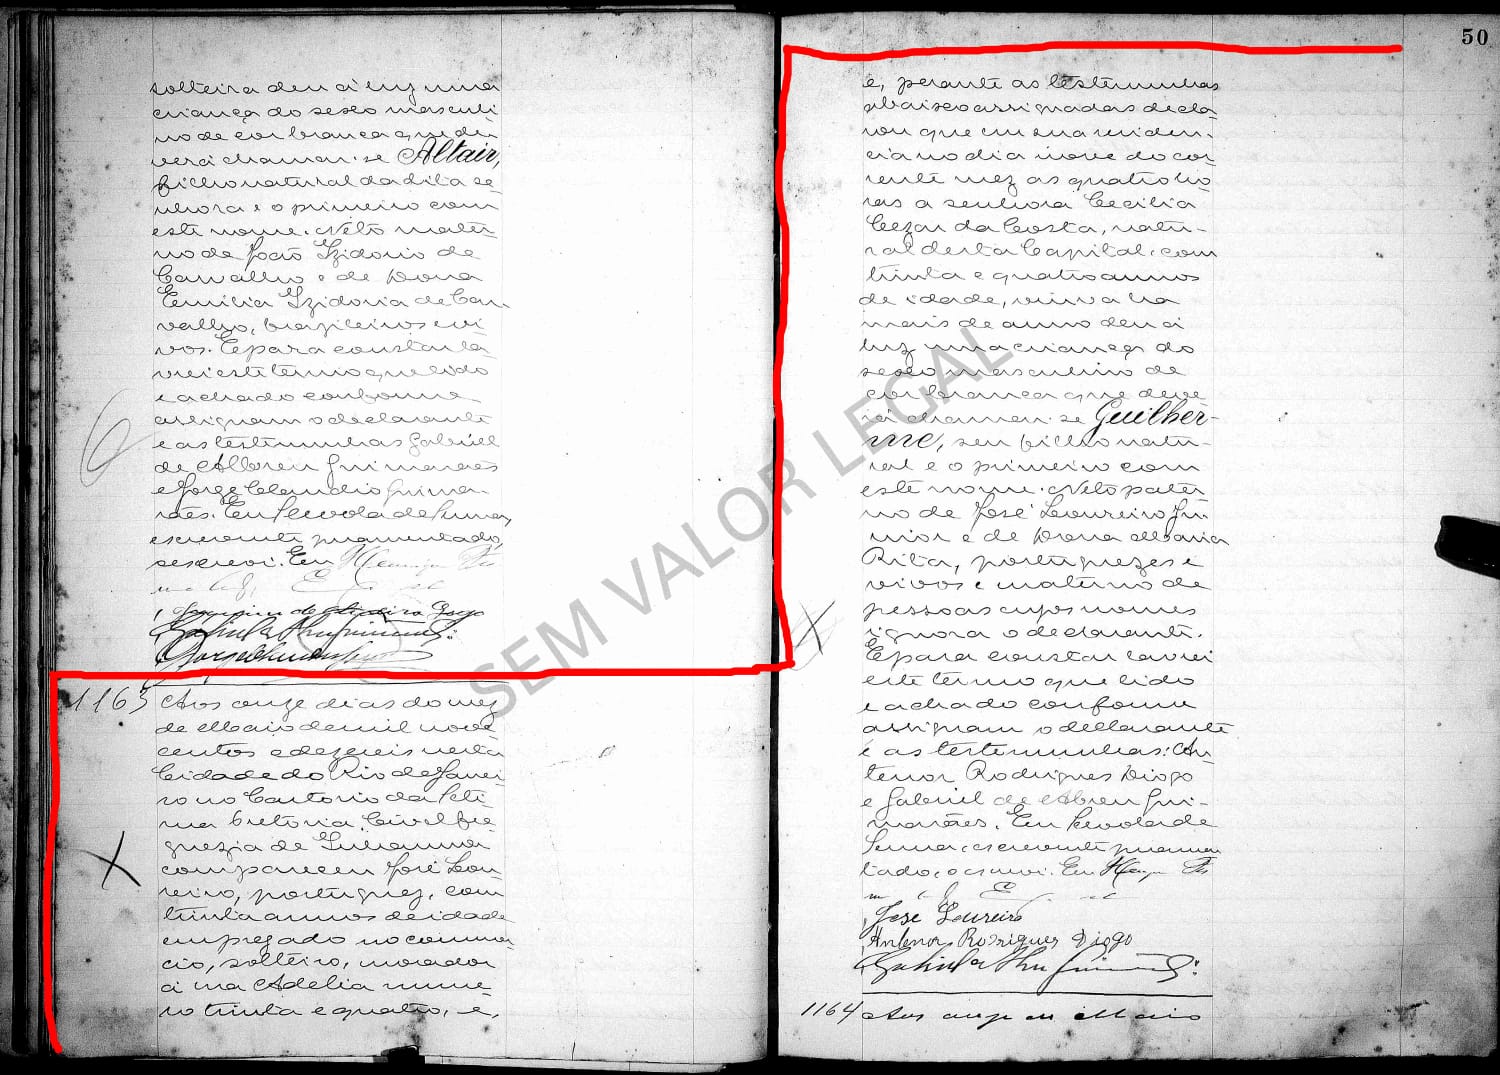 solteira deu á luz uma
criança do sexo masculi
no de cor branca que de
verá chamar-se Altair,
filho natural da dita se
nhora e o primeiro com
este nome. Neto mater
no de João Izidorio de
Carvalho e de Dona
Emilia Izidoria de Car-
valho, brazileiros e vi
vos. E para constar la
vrei este termo que lido
e achado conforme
assignam o declarante
e as testemunhas Gabriel
de Abreu Guimarães
e Jorge Claudio Guima-
rães. Eu Scevola de Senna,
escrevente juramentado,
escrevi. Eu
1163
Aos onze dias do mez
de Maio de mil nove
centos e dezeseis nesta
Cidade do Rio de Janei
ro no Cartorio da Seti
ma Pretoria Civel fre
guezia de Inhauma
compareceu José Lou-
reiro, portuguez, com
trinta annos de idade
empregado no commer
cio, solteiro, morador
á rua Adelia nume-
ro trinta e quatro, e,
50
e, perante as testemunhas
abaixo assignadas decla-
rou que em sua residen-
cia no dia nove do cor-
rente mez as quatro ho
ras a senhora Cecilia
Cezar da Costa, natu-
ral desta Capital, com
trinta e quatro annos
de idade, viuva ha
mais de anno deu á
luz uma criança do
sexo masculino de
cor branca que deve
rá chamar-se Guilher-
me, seu filho natu-
ral e o primeiro com
este nome. Neto pater
no de José Loureiro Ju
nior e de Dona Maria
Rita, portuguezes e
vivos e materno de
pessoas cujos nomes
ignora o declarante.
E para constar lavrei
este termo que lido
e achado conforme
assignam o declarante
e as testemunhas: An
tenor Rodrigues Diogo
e Gabriel de Abreu Gui-
marães. Eu Scevola de
Senna, escrevente juramen
tado, o escrevi. Eu
José Loureiro
Antenor Rodrigues Diogo
1164 Aos onze de Maio
SEM VALOR LEGAL